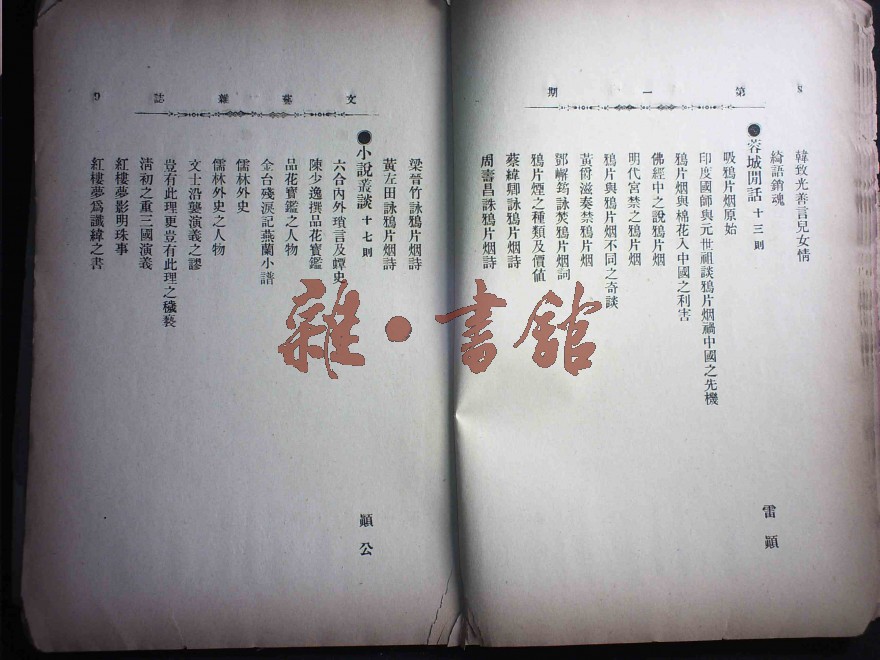 第一期
8
韓致光善言兒女情
綺語銷魂
●蓉城閒話 十三則
雷顚
吸鴉片烟原始
印度國師與元世祖談鴉片烟禍中國之先機
鴉片烟與棉花入中國之利害
佛經中之說鴉片烟
明代宮禁之鴉片烟
鴉片與鴉片烟不同之奇談
黃爵滋奏禁鴉片烟
鄧嶰筠詠焚鴉片烟詞
鴉片煙之種類及價値
蔡緯卿詠鴉片烟詩
周壽昌詠鴉片烟詩
文藝雜誌
9
梁晉竹詠鴉片烟詩
黃左田詠鴉片烟詩
●小說叢談 十七則
顚公
六合內外瑣言及蟫史
陳少逸撰品花寶鑑
品花寶鑑之人物
金台殘淚記燕蘭小譜
儒林外史
儒林外史之人物
文士沿襲演義之謬
豈有此理更豈有此理之穢褻
淸初之重三國演義
紅樓夢影明珠事
紅樓夢爲讖緯之書
雜·書館